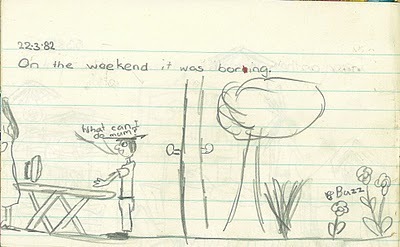 22.3.82
On the weekend it was boring.
What can I
do mum?
Buzz